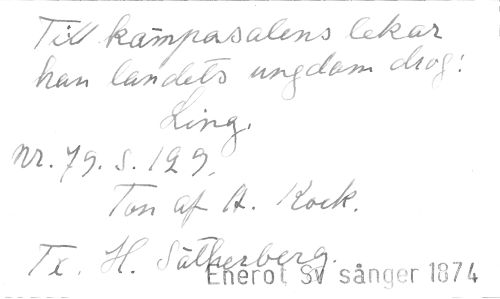 Till kämpasalens lekar
han landets ungdom drog!
Ling.
Nr. 79. s. 199.
Ton af A. Kock.
Tx. H. Sätherberg.
Enerot Sv sånger 1874